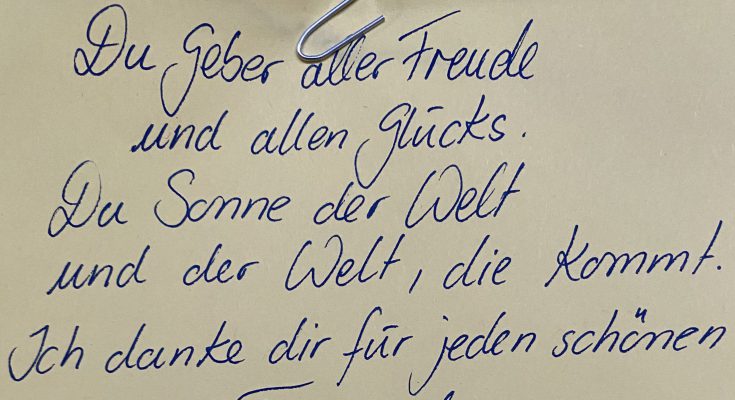 Du Geber aller Freude
und allen Glücks.
Du Sonne der Welt
und der Welt, die kommt.
Ich danke dir für jeden schönen